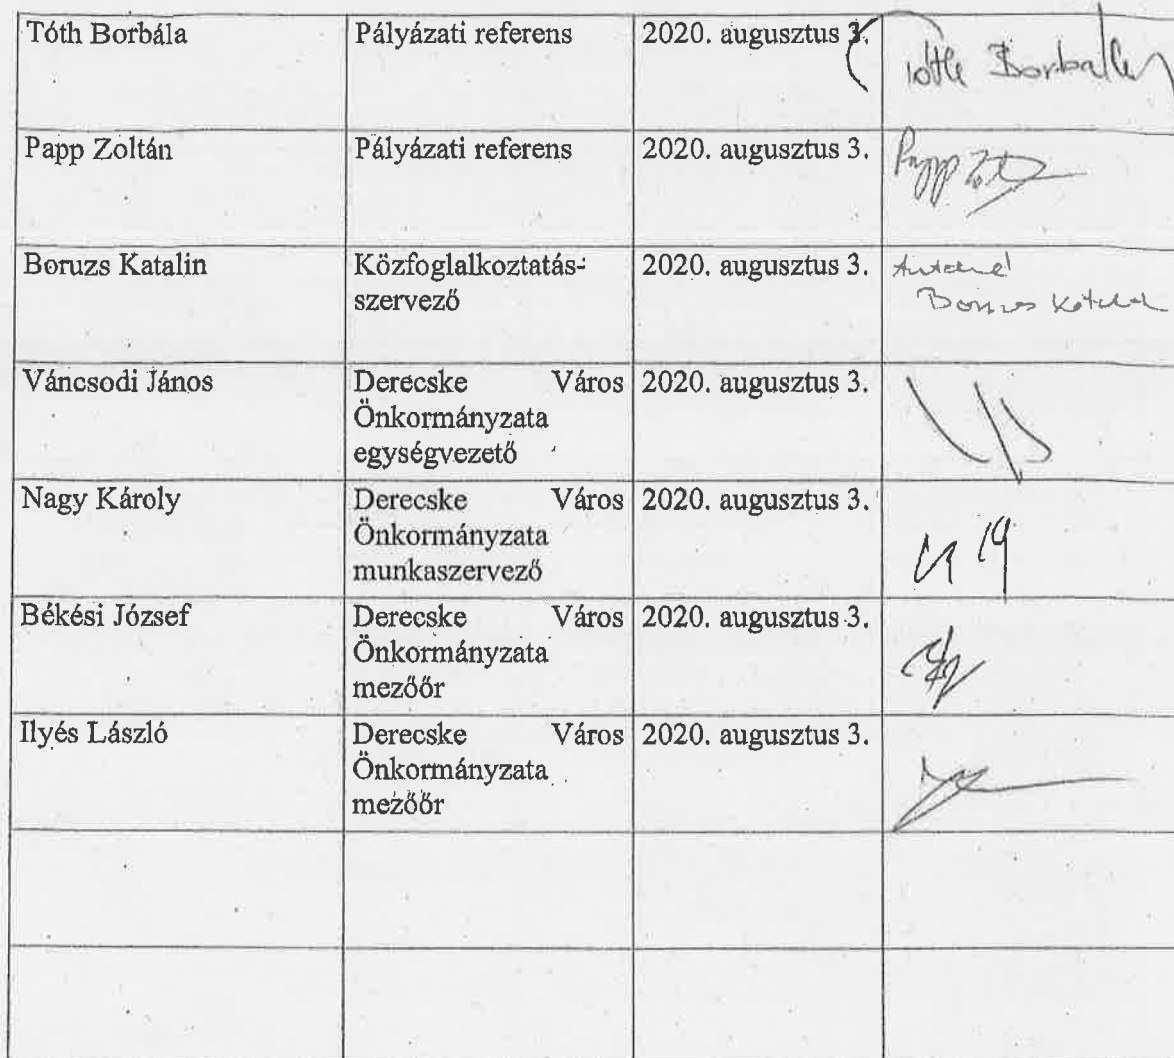 Tóth Borbála
Pályázati referens
2020. augusztus 3.
Tóth Borbála
Papp Zoltán
Pályázati referens
2020. augusztus 3.
Papp
Boruzs Katalin
Közfoglalkoztatás-
szervező
2020. augusztus 3.
Boruzs Katalin
Váncsodi János
Derecske Város
Önkormányzata
egységvezető
2020. augusztus 3.
Nagy Károly
Derecske Város
Önkormányzata
munkaszervező
2020. augusztus 3.
Békési József
Derecske Város
Önkormányzata
mezőőr
2020. augusztus 3.
Ilyés László
Derecske Város
Önkormányzata
mezőőr
2020. augusztus 3.